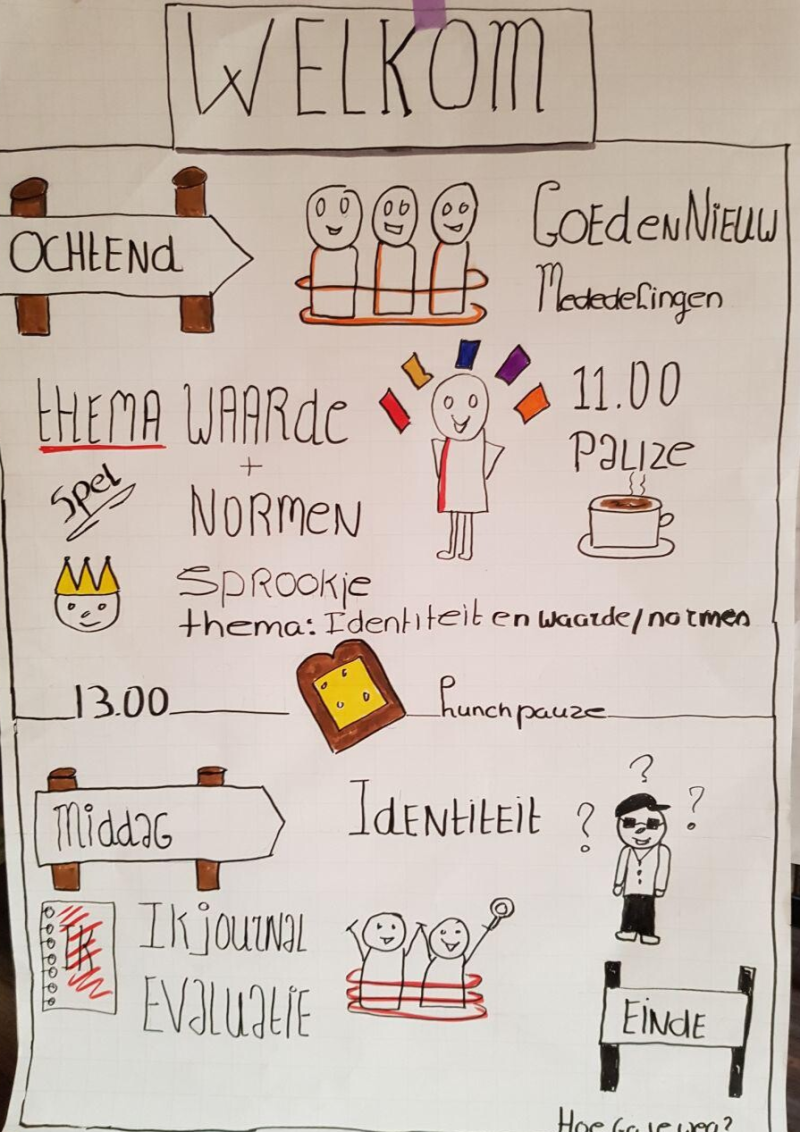 WELKOM
OCHTENd
GOEd eN NiEUW
Mededelingen
tHEMA WAARde
+
NORMeN
Spel
11.00
PaUZe
SPROOKje
thema: Identiteit en waarde/normen
13.00
Lunchpauze
Middag
IdENtitEit
? ? ?
IK
IK jouRNaL
EVaLUatiE
EiNdE
Hoe ga je weg?